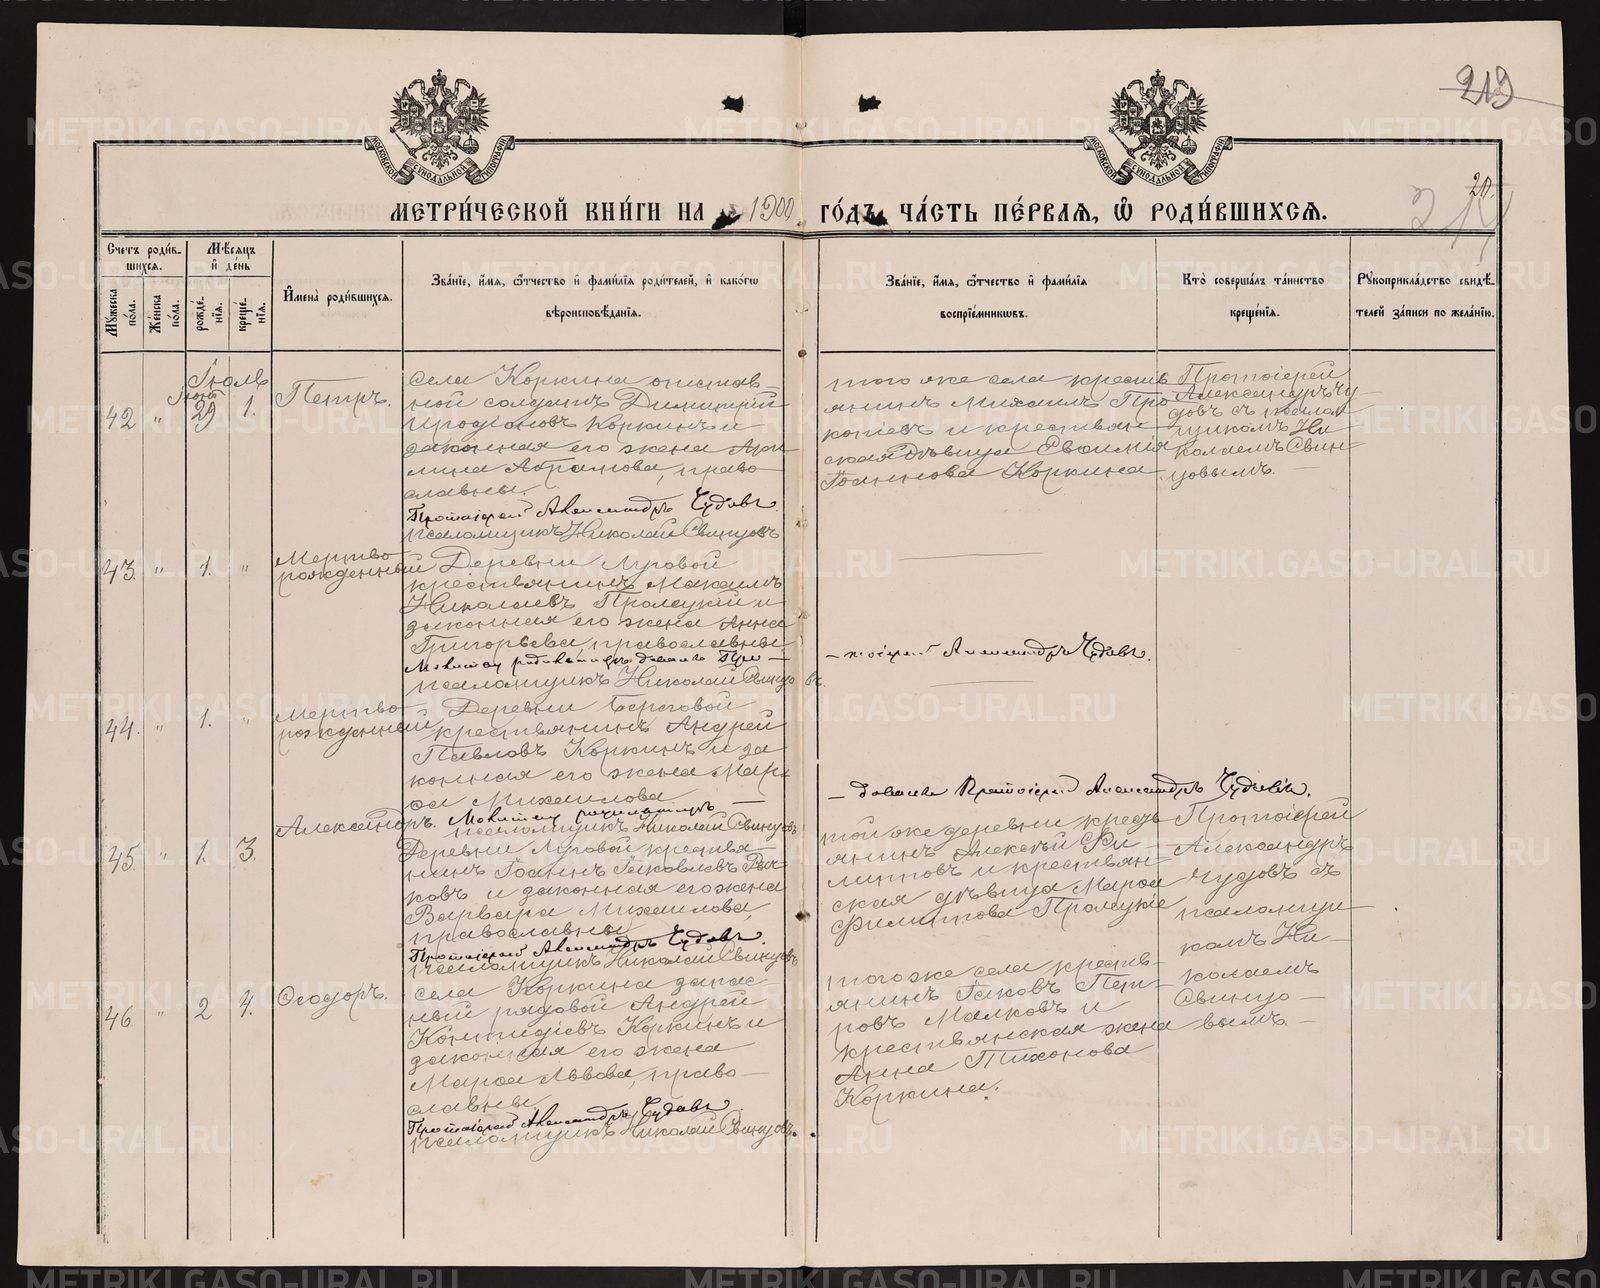 219
21.
214
МОСКОВСКОЙ СѴНОДАЛЬНОЙ ТИПОГРАФІИ
МОСКОВСКОЙ СѴНОДАЛЬНОЙ ТИПОГРАФІИ
МЕТРИ́ЧЕСКОЙ КНИ́ГИ НА 1900 ГО́ДЪ, ЧА́СТЬ ПЕ́РВАЯ, Ѡ҆ РОДИ́ВШИХСЯ.
Счетъ роди́в-
шихся.
Мѣ́сяцъ
и҆ де́нь
Мꙋжеска по́ла.
Же́нска по́ла.
рожде́-
нїя.
креще́-
нїя.
И҆мена̀ роди́вшихся.
Зва́нїе, и҆́мя, ѻ҆́тчество и҆ фами́лїя роди́телей, и҆ како́гѡ
вѣроисповѣ́данїя.
Зва́нїе, и҆́мя, ѻ҆́тчество и҆ фами́лїя
воспрїе́мникѡвъ.
Кто̀ соверша́лъ та́инство
креще́нїя.
Рꙋкоприкла́дство свидѣ́-
телей за́писи по жела́нїю.
Іюль
Іюнь
42 " 29 1. Петръ.
села Коркина отстав-
ной солдатъ Димитрій
Иродіоновъ Коркинъ и
законная его жена
Абрамова, право-
славны.
Протоіерей Александръ Чудовъ.
псаломщикъ Николай Свинцовъ
того же села кресть
янинъ Михаилъ Про
копіевъ и крестьян-
ская дѣвица Евѳимія
Іоаннова Коркина.
Протоіерей
Александръ Чу-
довъ съ псалом
щикомъ Ни
колаемъ Свин-
цовымъ. —
43. " 1. " Мертво
рожденный
Деревни Луговой
крестьянинъ Максимъ
Николаевъ Пролуцкій и
законная его жена Анна
Григорьева, православны
псаломщикъ Николай Свинцовъ.
— тоіерей Александръ Чудовъ.
44. " 1. " Мертво
рожденный
Деревни Береговой
крестьянинъ Андрей
Павловъ Коркинъ и за
конная его жена Мар-
ѳа Михаилова —
псаломщикъ Николай Свинцовъ
— Протоіерей Александръ Чудовъ.
45. " 1. 3. Александръ.
Деревни Луговой крестья-
нинъ Іоаннъ Іаковлевъ
ковъ и законная его жена
Варвара Михаилова,
православны
Протоіерей Александръ Чудовъ.
псаломщикъ Николай Свинцовъ
той же деревни кресть
янинъ Алексѣй Фи
липповъ и крестьян-
ская дѣвица Марѳа
Филиппова
Протоіерей
Александръ
Чудовъ съ
псаломщи
комъ Ни-
колаемъ
Свинцо-
вымъ. —
46 " 2 4. Ѳеодоръ.
села Коркина запас-
ный рядовой Андрей
Коркинъ и
законная его жена
Марѳа Львова, право-
славны.
Протоіерей Александръ Чудовъ.
псаломщикъ Николай Свинцовъ.
того же села кресть-
янинъ Іаковъ Пет-
ровъ Малковъ и
крестьянская жена
Анна Тихонова
Коркина.